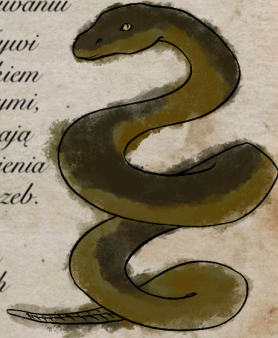 żywi
kiem
ymi,
ają
ienia
zeb.
h